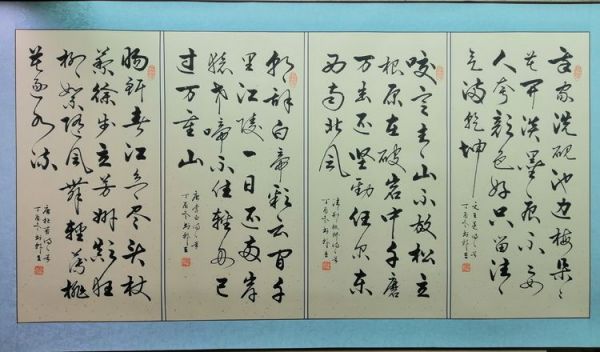 吾家洗砚池边梅朵〻
花开淡墨痕不要
人夸颜色好只留清〻
气满乾坤
元王冕诗一首
丁酉年
咬定青山不放松立
根原在破岩中千磨
万击还坚劲任尔东
西南北风
清郑板桥诗一首
丁酉年
朝辞白帝彩云间千
里江陵一日还两岸
猿声啼不住轻舟已
过万重山
唐李白诗一首
丁酉年
肠断春江欲尽头杖
藜徐步立芳洲颠狂
柳絮随风舞轻薄桃
花逐水流
唐杜甫诗一首
丁酉年